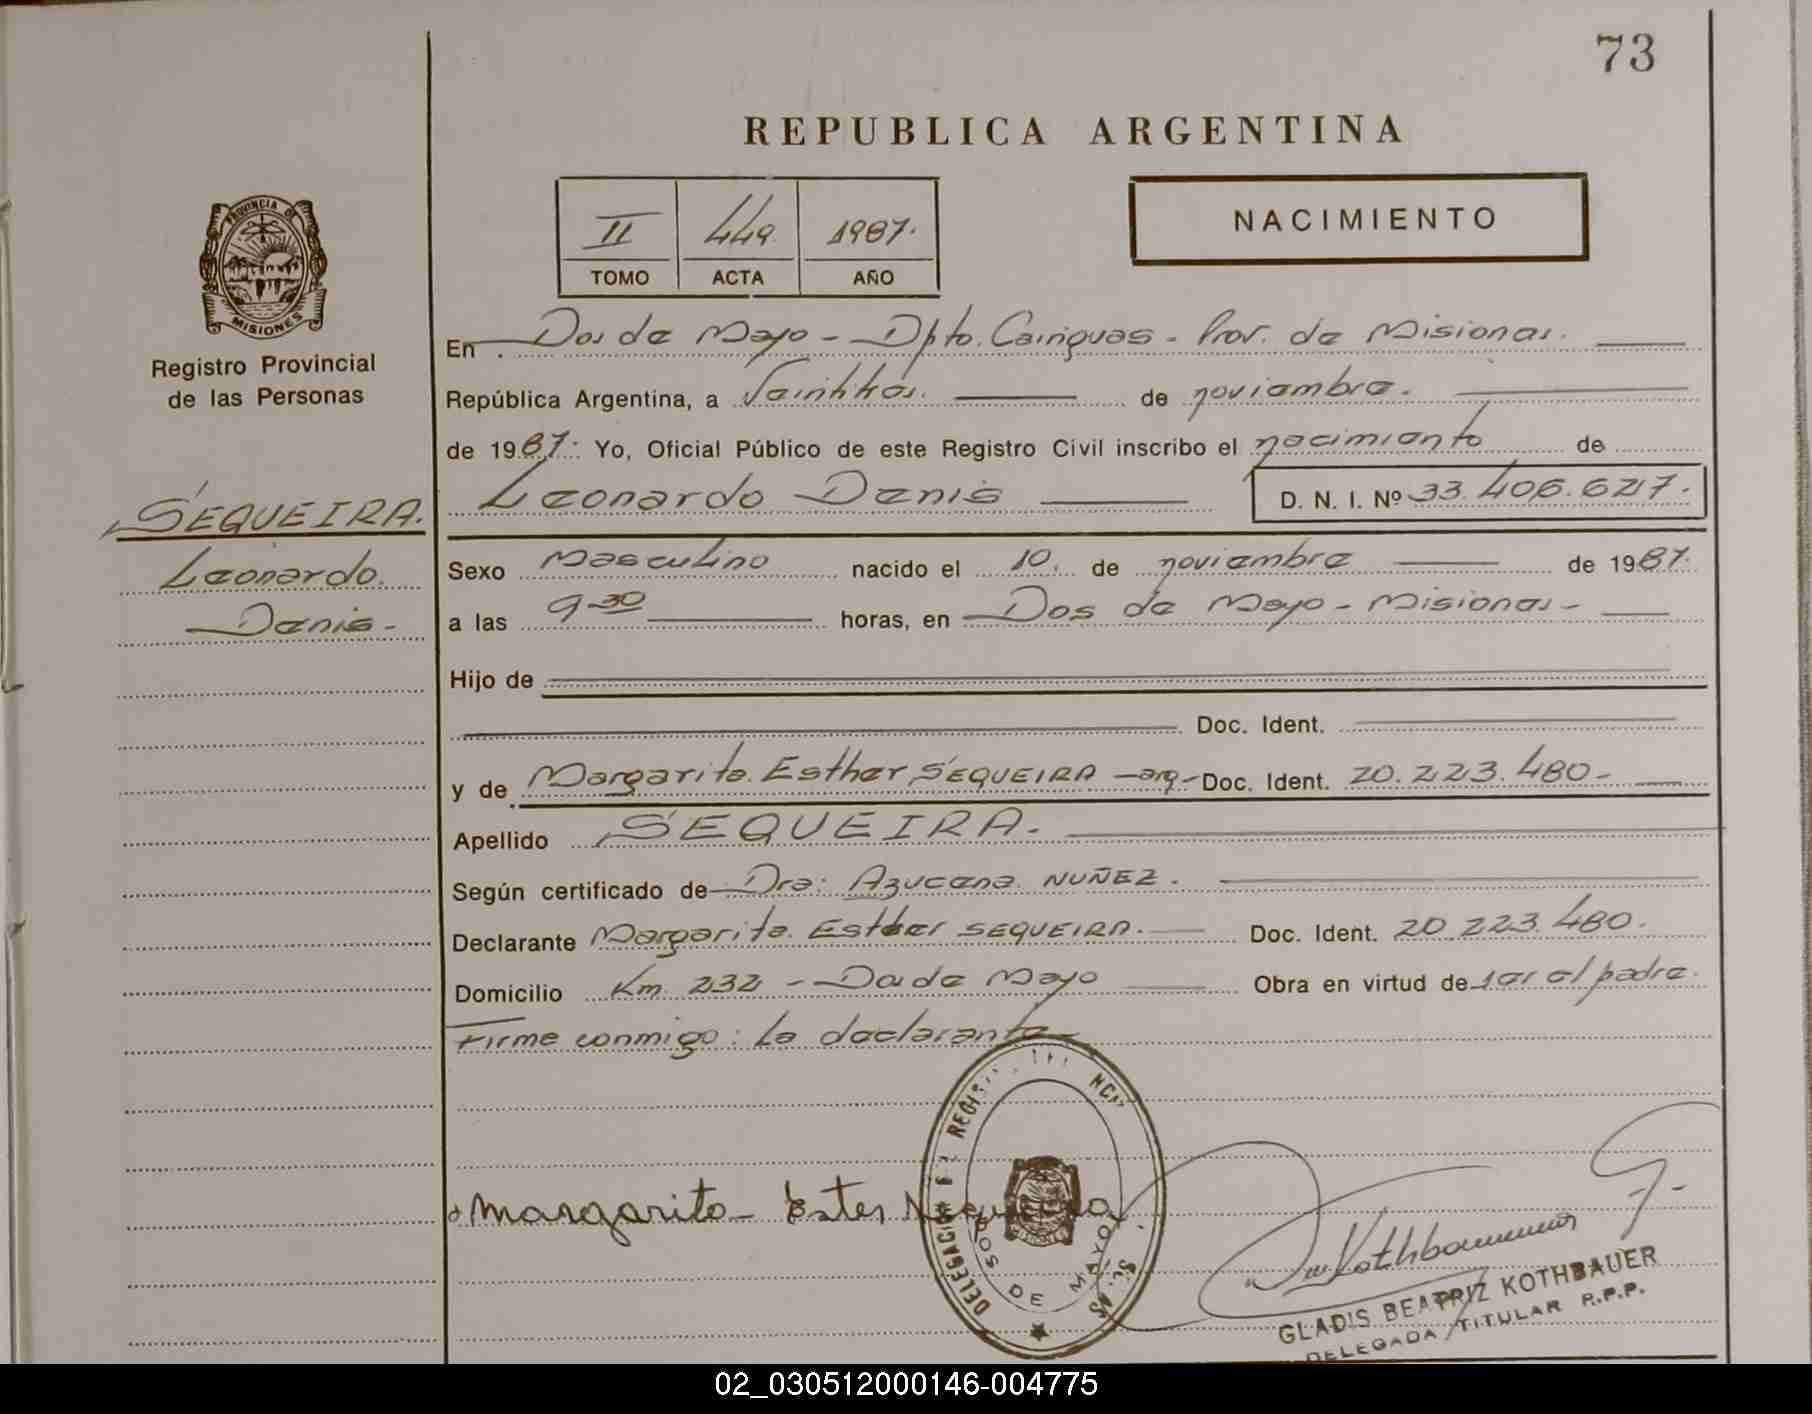 73
REPUBLICA ARGENTINA
PROVINCIA DE
MISIONES
Registro Provincial
de las Personas
II 449 1987.
TOMO ACTA AÑO
NACIMIENTO
En Dos de Mayo - Dpto. Cainguas - Prov. de Misiones.
República Argentina, a Veintitrés. de noviembre.
de 1987. Yo, Oficial Público de este Registro Civil inscribo el nacimiento de
SEQUEIRA.
Leonardo Denis
D. N. I. Nº 33.406.627.
Leonardo.
Denis-
Sexo Masculino nacido el 10. de noviembre de 1987.
a las 9-30 horas, en Dos de Mayo - Misiones -
Hijo de
Doc. Ident.
y de Margarita Esther SEQUEIRA -arg- Doc. Ident. 20.223.480-
Apellido SEQUEIRA.
Según certificado de Dra: Azucena NUÑEZ.
Declarante Margarita Esther SEQUEIRA. Doc. Ident. 20.223.480.
Domicilio Km. 232 - Dos de Mayo Obra en virtud de ser el padre.
Firma conmigo: La declarante
Margarita Ester Sequeira
DOS DE MAYO
Kothbauer
GLADIS BEATRIZ KOTHBAUER
DELEGADA TITULAR R.P.P.
02_030512000146-004775